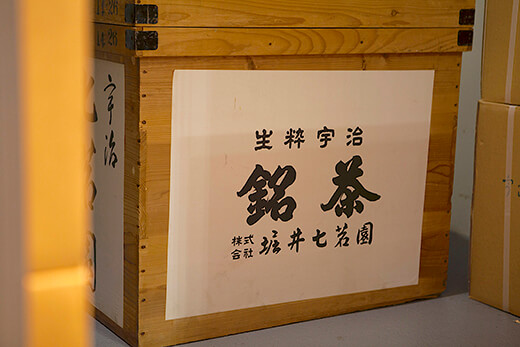 生粋宇治
銘茶
株式会社 堀井七茗園
宇治
園